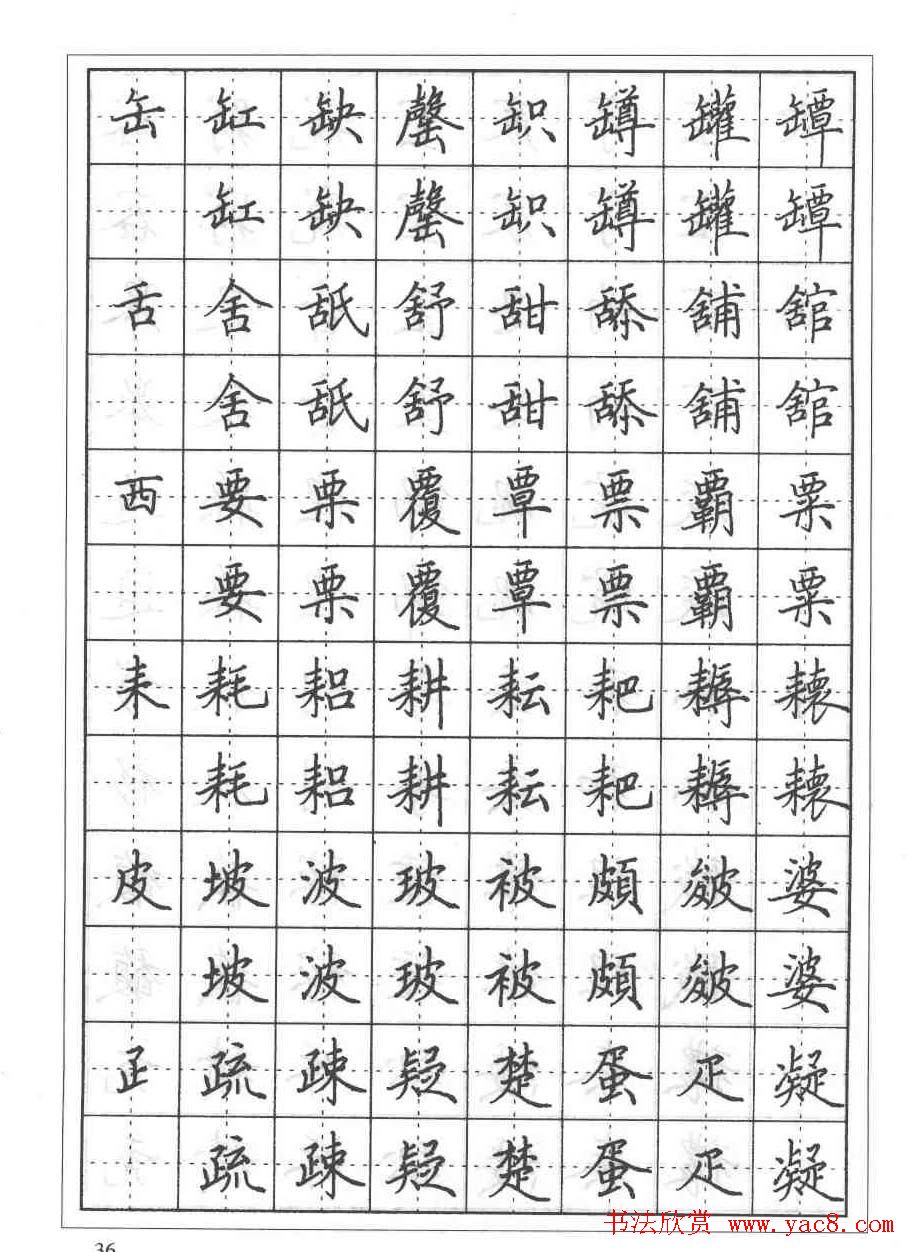 缶 缸 缺 罄 𫛛 罇 罐 罈
缸 缺 罄 罇 罐 罈
舌 舍 舐 舒 甜 舔 舖 舘
舍 舐 舒 甜 舔 舖 舘
西 要 栗 覆 覃 票 覇 粟
要 栗 覆 覃 票 覇 粟
耒 耗 耜 耕 耘 耙 耨 耲
耗 耜 耕 耘 耙 耨 耲
皮 坡 波 玻 被 頗 皴 婆
坡 波 玻 被 頗 皴 婆
疏 疎 疑 楚 蛋 疋 凝
疏 疎 疑 楚 蛋 疋 凝
书法欣赏 www.yac8.com
36